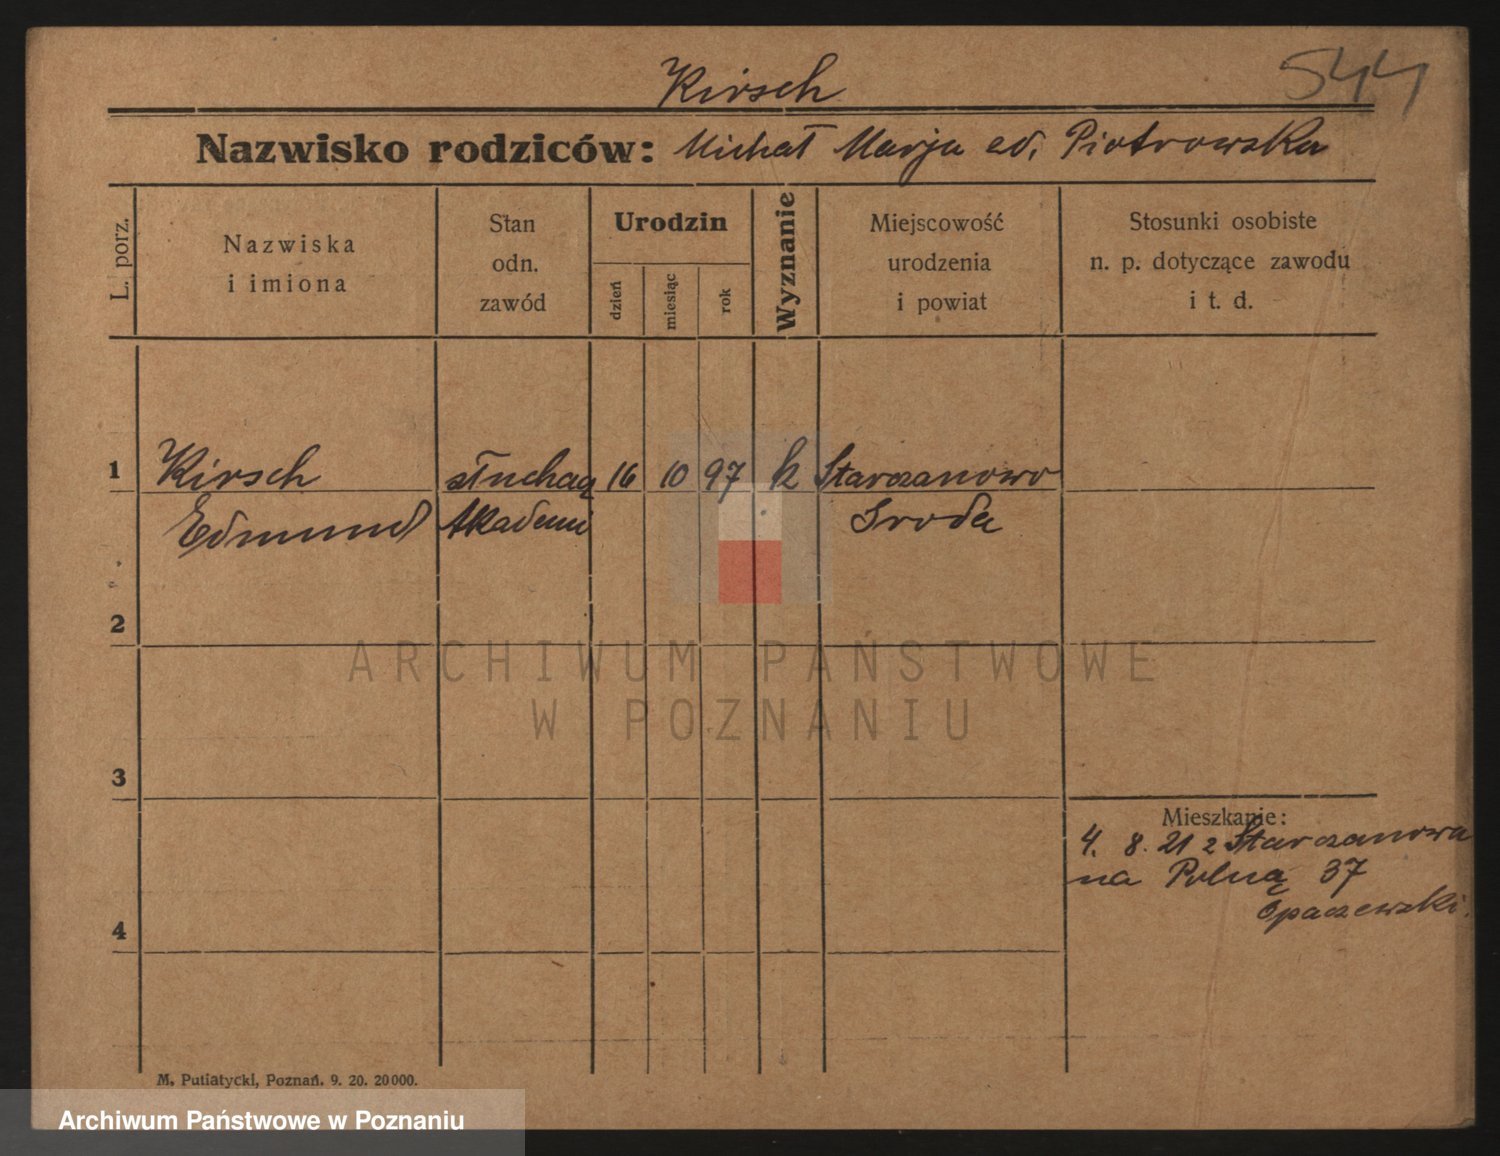 Kirsch
544
Nazwisko rodziców: Michał Marja Piotrowska
L. porz.
Nazwiska
i imiona
Stan
odn.
zawód
Urodzin
dzień
miesiąc
rok
Wyznanie
Miejscowość
urodzenia
i powiat
Stosunki osobiste
n. p. dotyczące zawodu
i t. d.
1 Kirsch słuchacz 16 10 97 k Starczanowo
Edmund Akademi Sroda
2
ARCHIWUM PAŃSTWOWE
W POZNANIU
3
Mieszkanie:
4. 8. 21 z Starczanowa
na Polną 37
Opaczewski.
4
M. Putiatycki, Poznań. 9. 20. 20000.
Archiwum Państwowe w Poznaniu